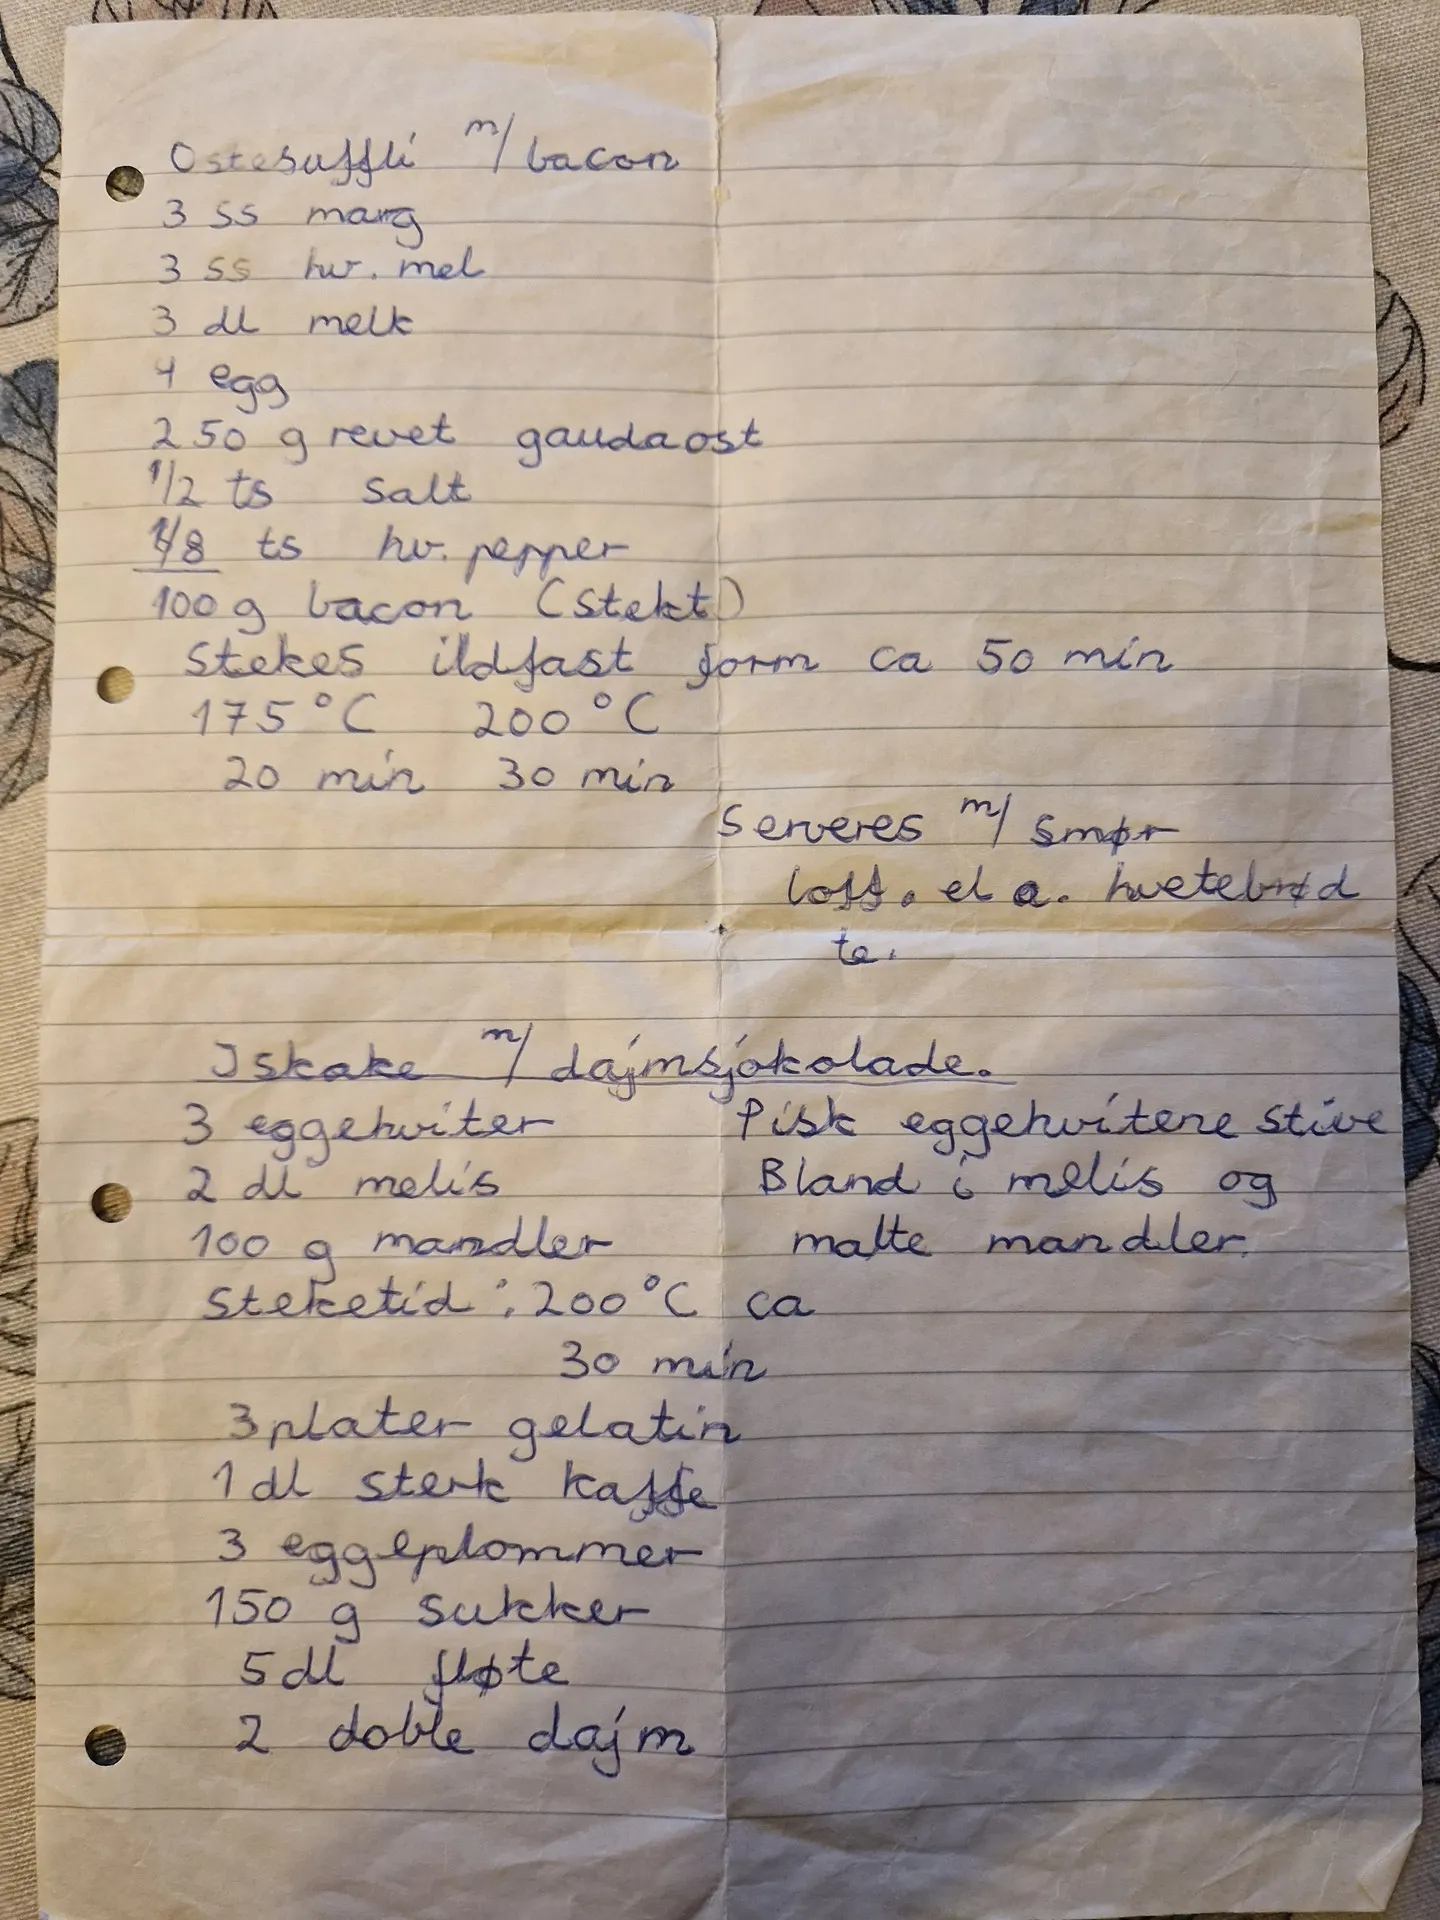 Ostesuffli m/ bacon
3 ss marg
3 ss hv. mel
3 dl melk
4 egg
250 g revet gaudaost
1/2 ts salt
1/8 ts hv. pepper
100 g bacon (stekt)
stekes ildfast form ca 50 min
175°C 200°C
20 min 30 min
Serveres m/ smør
loff. el a. hvetebrød
te.
Iskake m/ dajmsjokolade.
3 eggehviter
2 dl melis
100 g mandler
steketid: 200°C ca
30 min
Pisk eggehvitene stive
Bland i melis og
malte mandler.
3 plater gelatin
1 dl sterk kaffe
3 eggeplommer
150 g sukker
5 dl fløte
2 doble dajm